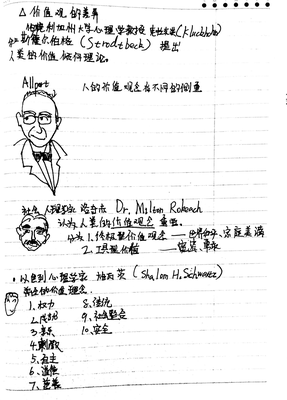 △ 价值观的差异
伯克利加州大学心理学教授 (Kluckhohn)
斯托伯格 (Strodtbeck) 提出
人类的价值倾向理论。
Allport
人的价值观念有不同的侧重
社会心理学家 Dr. Milton Rokeach
认为人类的价值观念
分为 1. 终极型价值观念 — 世界和平、家庭美满
2. 工具型价值
· 以色列心理学家 施瓦茨 (Shalom H. Schwarz)
价值观念
1. 权力 8. 传统
2. 成就 9.
3. 享乐 10. 安全
4. 刺激
5. 自主
6. 遵循
7. 慈善